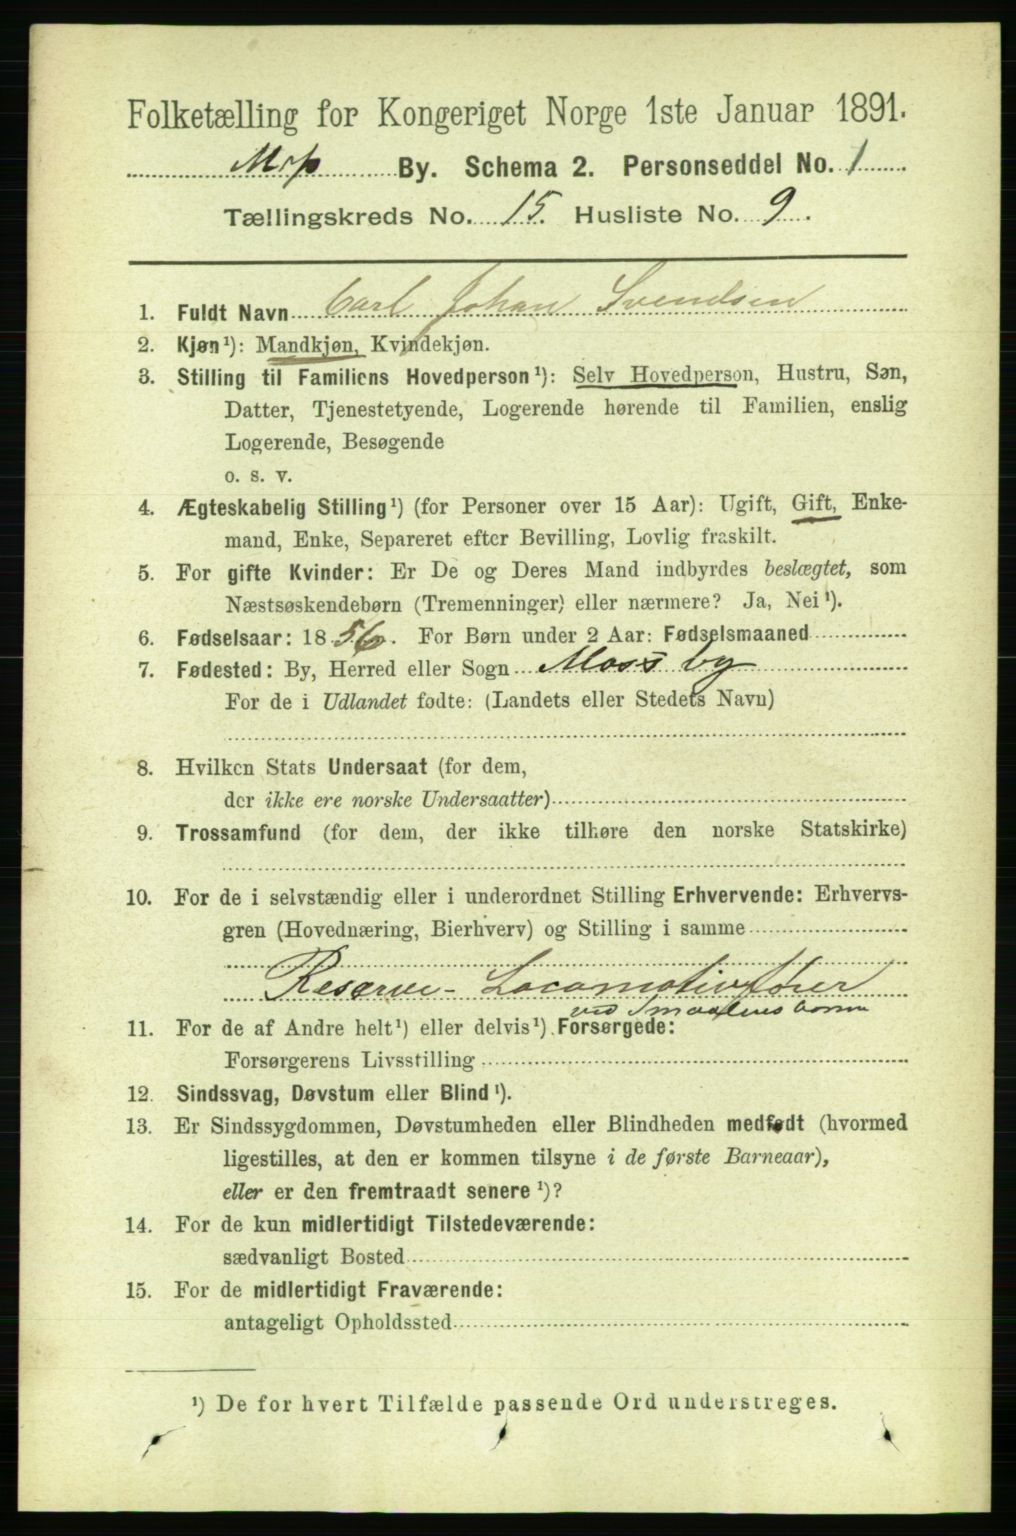 Folketælling for Kongeriget Norge 1ste Januar 1891.
Moss By. Schema 2. Personseddel No. 1
Tællingskreds No. 15. Husliste No. 9.
1. Fuldt Navn Carl Johan Svendsen
2. Kjøn¹): Mandkjøn, Kvindekjøn.
3. Stilling til Familiens Hovedperson¹): Selv Hovedperson, Hustru, Søn,
Datter, Tjenestetyende, Logerende hørende til Familien, enslig
Logerende, Besøgende
o. s. v.
4. Ægteskabelig Stilling¹) (for Personer over 15 Aar): Ugift, Gift, Enke-
mand, Enke, Separeret efter Bevilling, Lovlig fraskilt.
5. For gifte Kvinder: Er De og Deres Mand indbyrdes beslægtet, som
Næstsøskendebørn (Tremenninger) eller nærmere? Ja, Nei¹).
6. Fødselsaar: 1856. For Børn under 2 Aar: Fødselsmaaned
7. Fødested: By, Herred eller Sogn Moss by
For de i Udlandet fødte: (Landets eller Stedets Navn)
8. Hvilken Stats Undersaat (for dem,
der ikke ere norske Undersaatter)
9. Trossamfund (for dem, der ikke tilhøre den norske Statskirke)
10. For de i selvstændig eller i underordnet Stilling Erhvervende: Erhvervs-
gren (Hovednæring, Bierhverv) og Stilling i samme
Reserve- Locomotivfører
ved Smaalensbanen
11. For de af Andre helt¹) eller delvis¹) Forsørgede:
Forsørgerens Livsstilling
12. Sindssvag, Døvstum eller Blind¹).
13. Er Sindssygdommen, Døvstumheden eller Blindheden medfødt (hvormed
ligestilles, at den er kommen tilsyne i de første Barneaar),
eller er den fremtraadt senere¹)?
14. For de kun midlertidigt Tilstedeværende:
sædvanligt Bosted
15. For de midlertidigt Fraværende:
antageligt Opholdssted
¹) De for hvert Tilfælde passende Ord understreges.